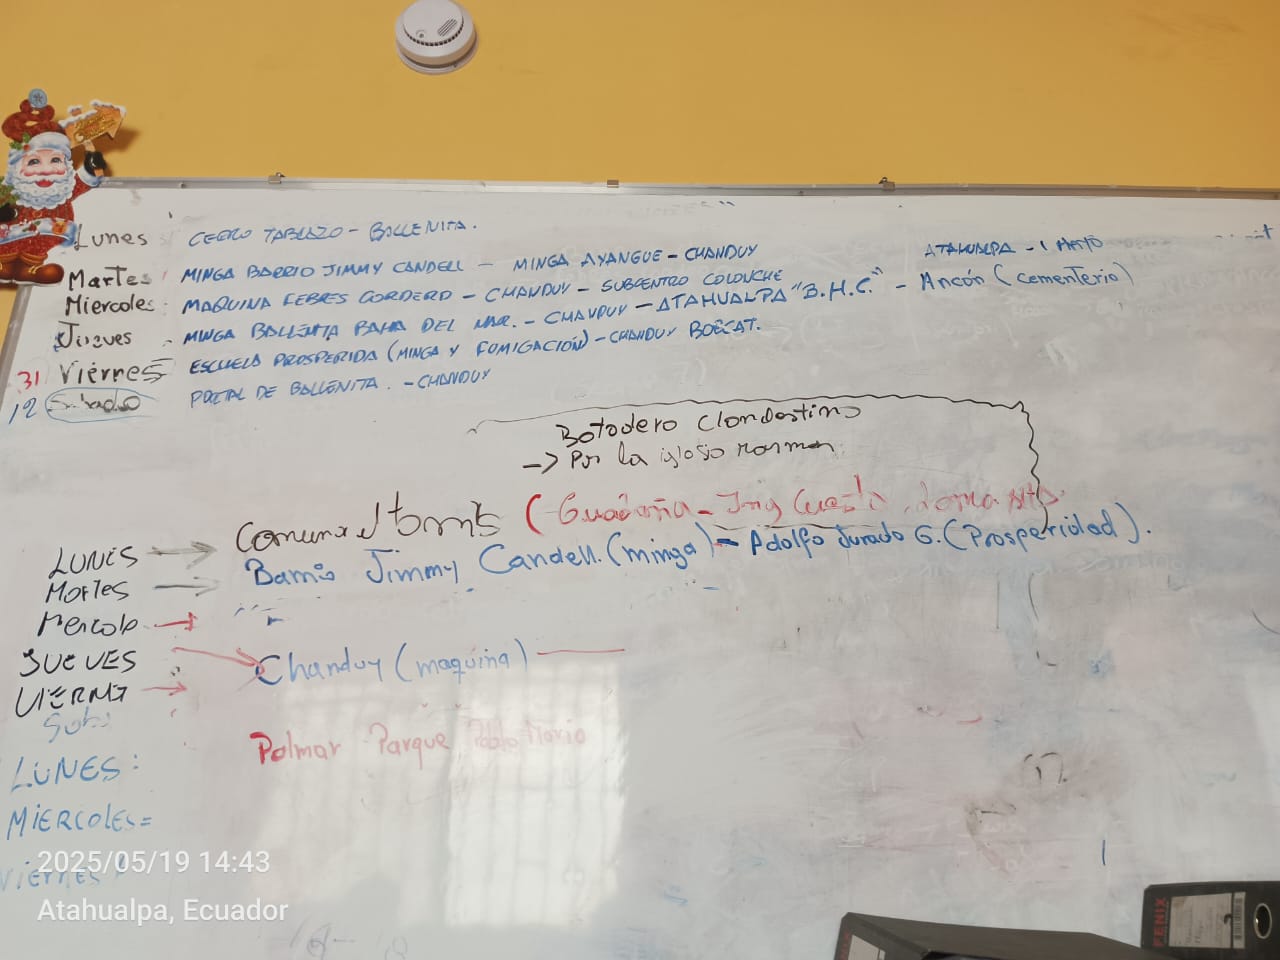 Lunes CERRO TABLAZO - BALLENITA.
Martes MINGA BARRIO JIMMY CANDELL - MINGA AYANGUE - CHANDUY ATAHUALPA - 1
Miercoles: MAQUINA FEBRES CORDERO - CHANDUY - SUBCENTRO COLONCHE
Jueves MINGA BALLENITA BAHIA DEL MAR. - CHANDUY - ATAHUALPA "B.H.C." - Ancón (cementerio)
31 Viernes ESCUELA PROSPERIDA (MINGA Y FUMIGACION) - CHANDUY BOBCAT.
12 Sabado PORTAL DE BALLENITA. - CHANDUY
Botadero Clandestino
-> Por la iglesia
LUNES Comuna (Guadaña - Ing
Martes Barrio Jimmy Candell. (minga) - Adolfo Jurado G. (Prosperidad).
Mercole
JUEVES Chanduy (maquina)
VIERNE
Palmar Parque
LUNES:
MIERCOLES=
Viernes
2025/05/19 14:43
Atahualpa, Ecuador
FENIX